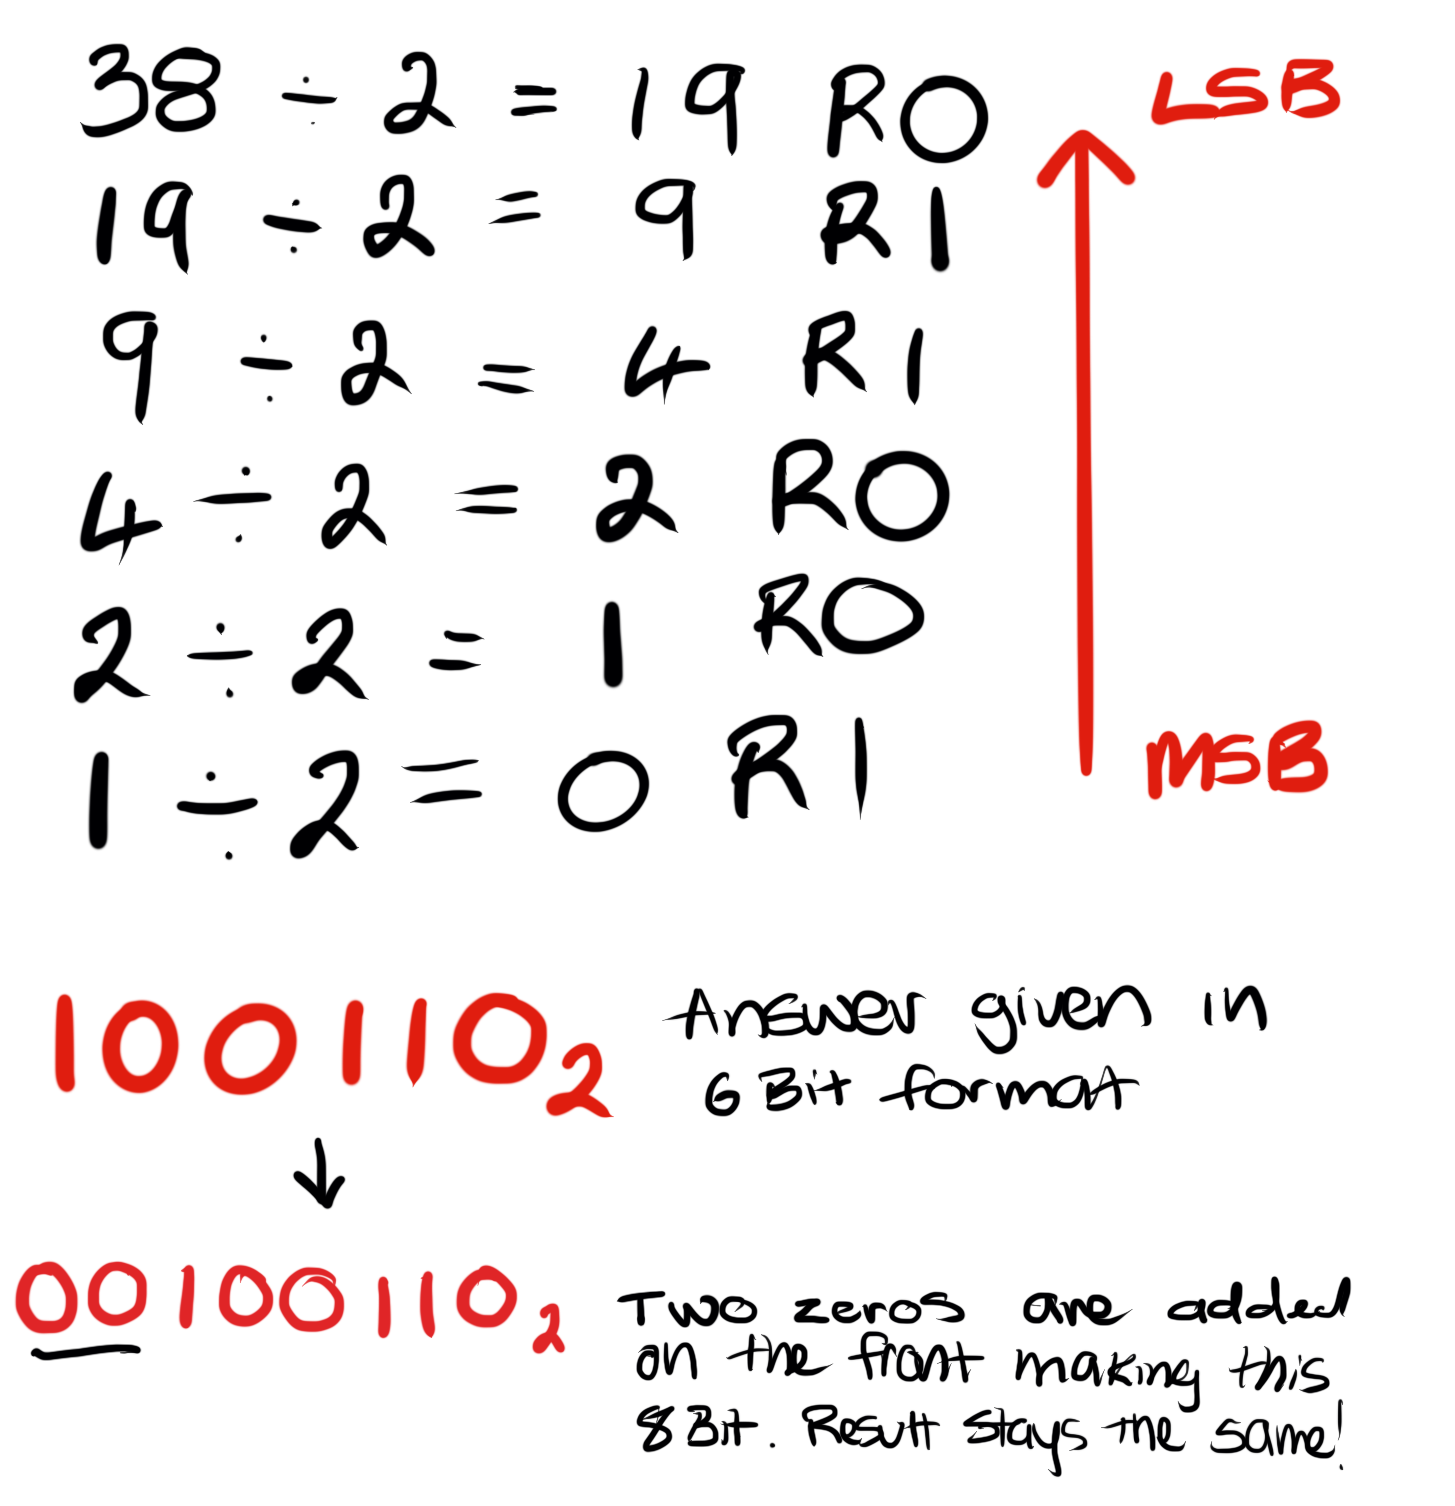 38 ÷ 2 = 19 R0 LSB
19 ÷ 2 = 9 R1
9 ÷ 2 = 4 R1
4 ÷ 2 = 2 R0
2 ÷ 2 = 1 R0
1 ÷ 2 = 0 R1 MSB
100110₂ Answer given in
6 Bit format
↓
00100110₂ Two zeros are added
on the front making this
8 Bit. Result stays the same!